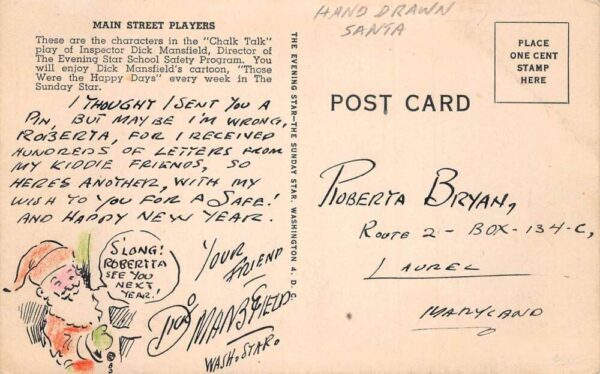 HAND DRAWN
SANTA
MAIN STREET PLAYERS
These are the characters in the "Chalk Talk"
play of Inspector Dick Mansfield, Director of
The Evening Star School Safety Program. You
will enjoy Dick Mansfield's cartoon, "Those
Were the Happy Days" every week in The
Sunday Star.
I THOUGHT I SENT YOU A
PIN, BUT MAYBE I'M WRONG,
ROBERTA, FOR I RECEIVED
HUNDREDS OF LETTERS FROM
MY KIDDIE FRIENDS, SO
HERES ANOTHER, WITH MY
WISH TO YOU FOR A SAFE!
AND HAPPY NEW YEAR.
S'LONG!
ROBERTTA
SEE YOU
NEXT
YEAR!
YOUR
FRIEND
DICK
MANSFIELD
WASH. STAR.
THE EVENING STAR—THE SUNDAY STAR, WASHINGTON 4, D. C.
POST CARD
PLACE
ONE CENT
STAMP
HERE
ROBERTA BRYAN,
ROUTE 2 - BOX - 134-C,
LAUREL
MARYLAND